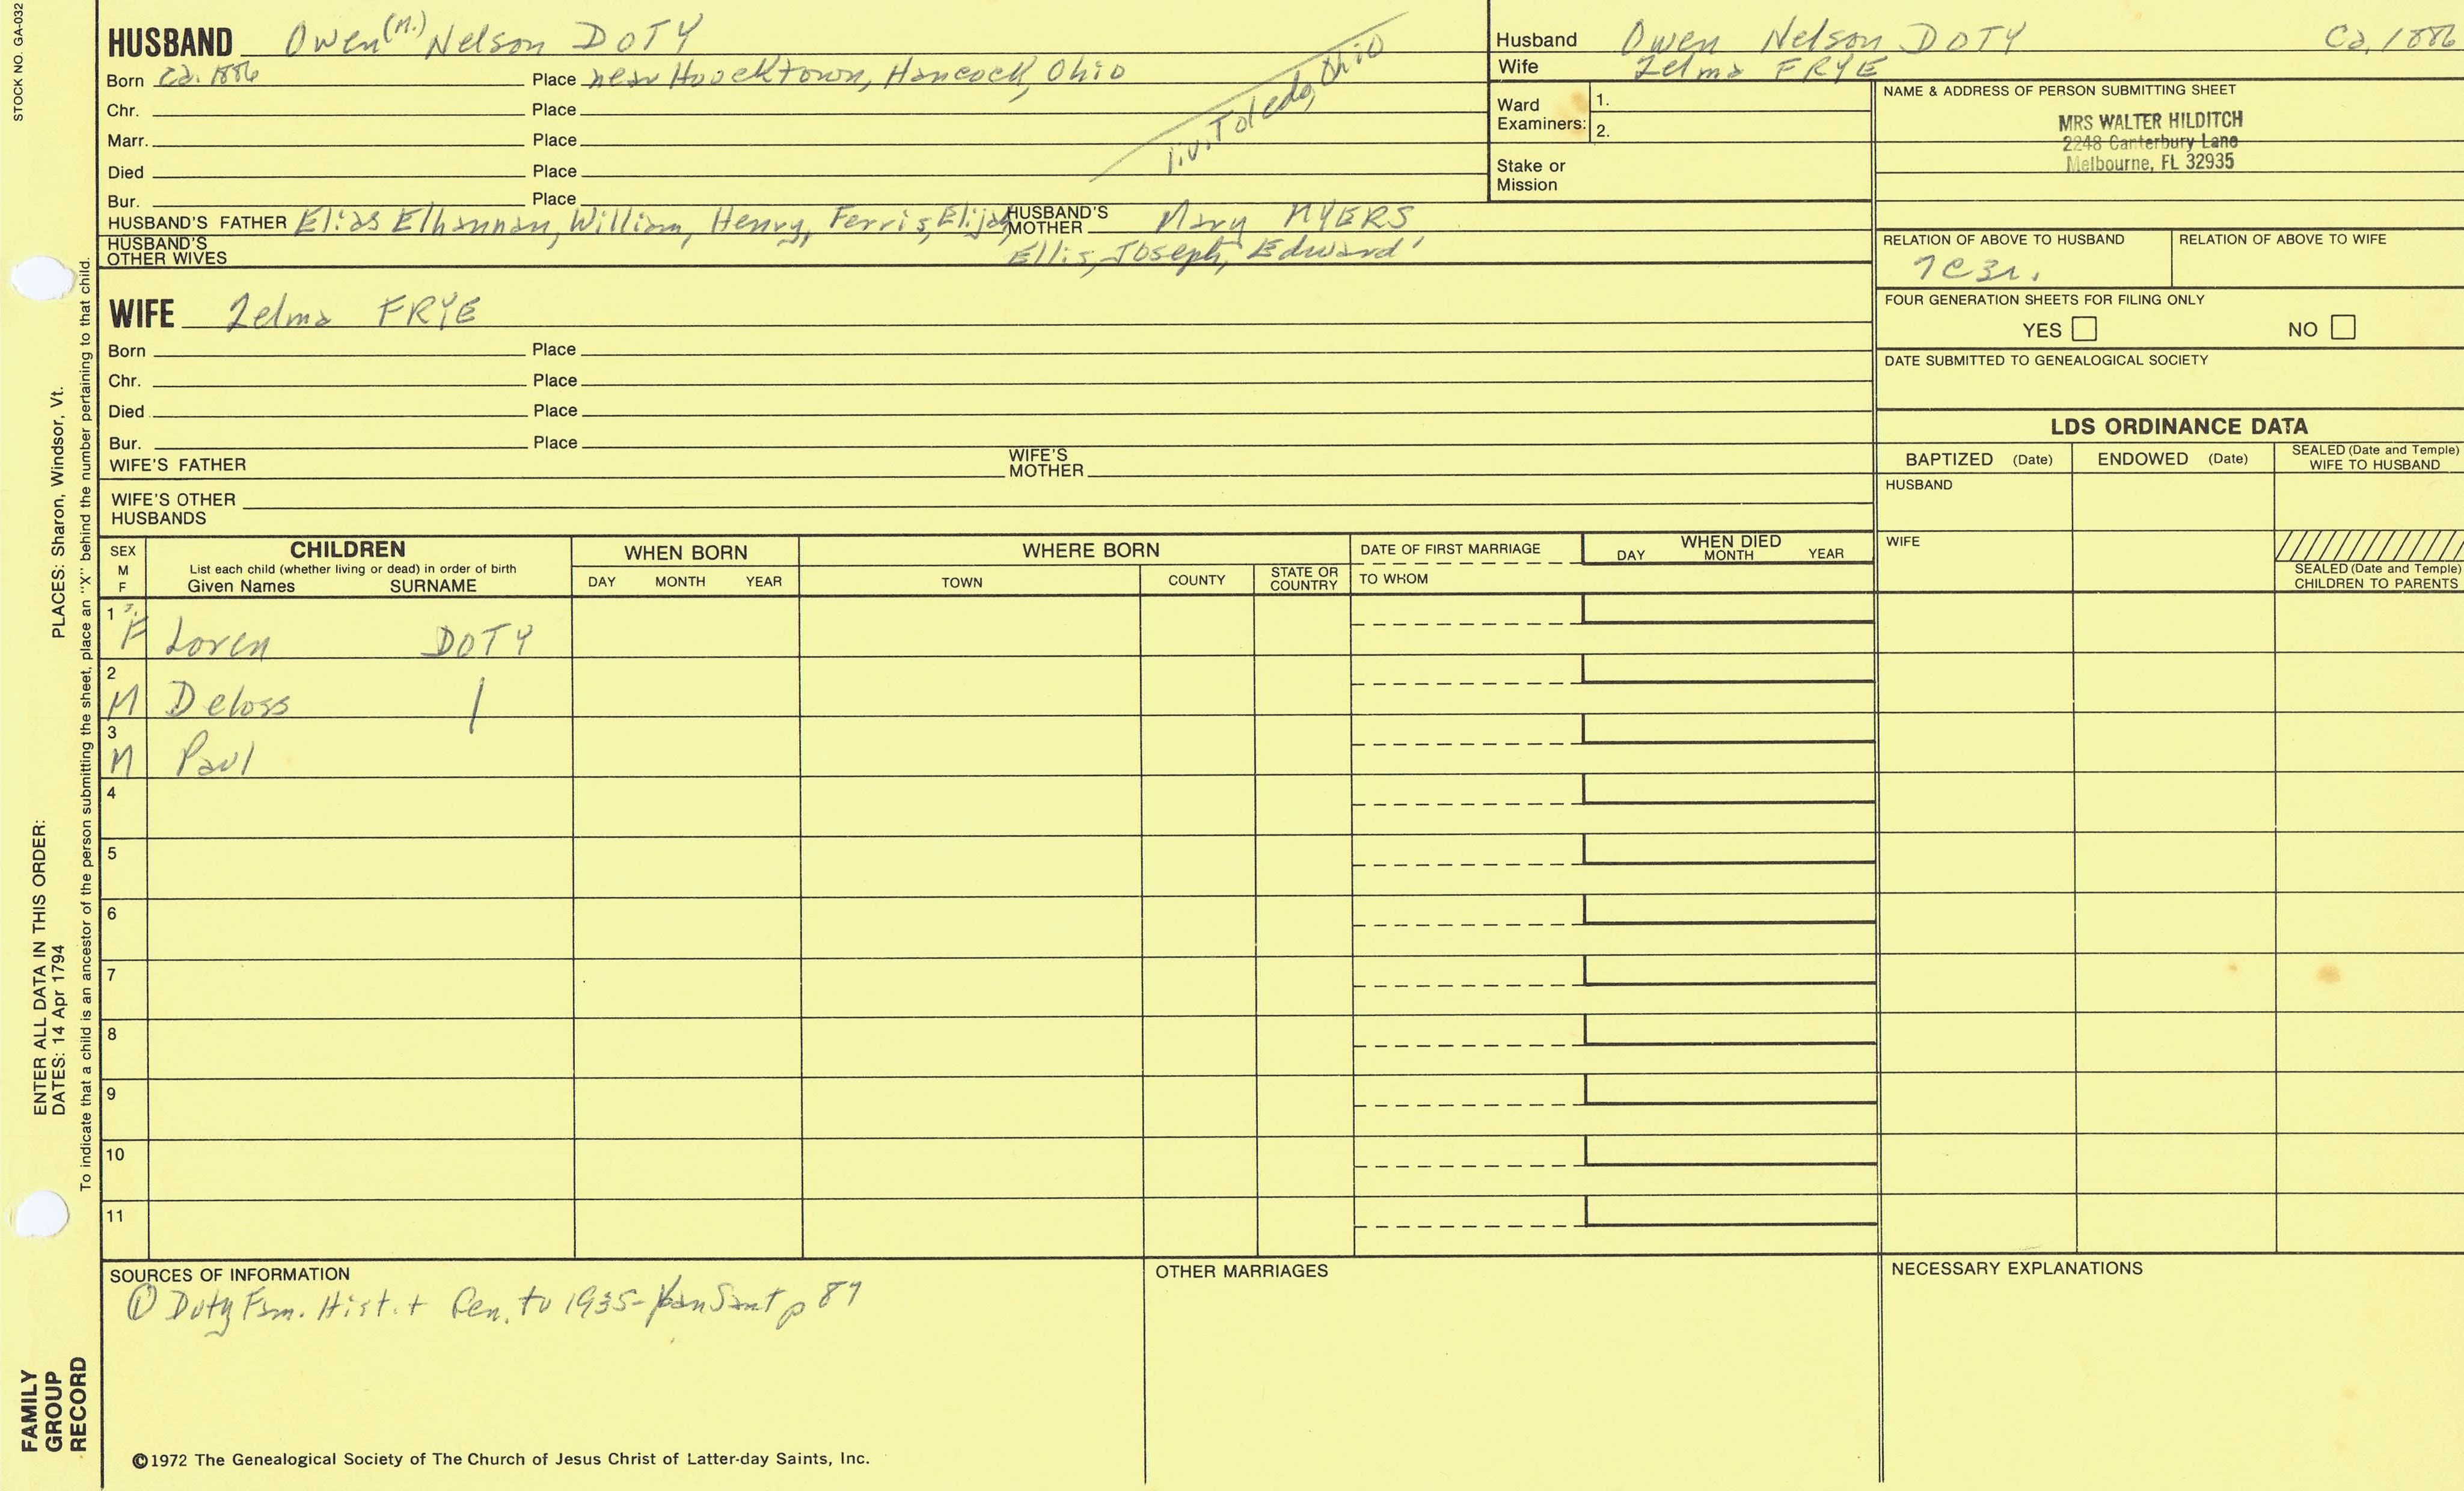 STOCK NO. GA-032
HUSBAND Owen (M.) Nelson DOTY
Born Ca. 1886 Place near Hoocktown, Hancock, Ohio
Chr. Place
Marr. Place
Died Place
Bur. Place
liv. Toledo, Ohio
HUSBAND'S FATHER Elias Elhannan, William, Henry, Ferris, Elijah, HUSBAND'S MOTHER Mary MYERS
HUSBAND'S OTHER WIVES Ellis, Joseph, Edward
Husband Owen Nelson DOTY Ca. 1886
Wife Zelma FRYE
Ward Examiners: 1.
2.
Stake or Mission
NAME & ADDRESS OF PERSON SUBMITTING SHEET
MRS WALTER HILDITCH
2248 Canterbury Lane
Melbourne, FL 32935
RELATION OF ABOVE TO HUSBAND RELATION OF ABOVE TO WIFE
7C3r.
FOUR GENERATION SHEETS FOR FILING ONLY
YES NO
DATE SUBMITTED TO GENEALOGICAL SOCIETY
WIFE Zelma FRYE
Born Place
Chr. Place
Died Place
Bur. Place
WIFE'S FATHER WIFE'S MOTHER
WIFE'S OTHER HUSBANDS
LDS ORDINANCE DATA
BAPTIZED (Date) ENDOWED (Date) SEALED (Date and Temple) WIFE TO HUSBAND
HUSBAND
WIFE
SEALED (Date and Temple) CHILDREN TO PARENTS
SEX M F
CHILDREN
List each child (whether living or dead) in order of birth
Given Names SURNAME
WHEN BORN
DAY MONTH YEAR
WHERE BORN
TOWN COUNTY STATE OR COUNTRY
DATE OF FIRST MARRIAGE
TO WHOM
WHEN DIED
DAY MONTH YEAR
1 F Loren DOTY
2 M Deloss |
3 M Paul
4
5
6
7
8
9
10
11
SOURCES OF INFORMATION
① Doty Fam. Hist. + Gen. to 1935- Van Sant p 87
OTHER MARRIAGES
NECESSARY EXPLANATIONS
©1972 The Genealogical Society of The Church of Jesus Christ of Latter-day Saints, Inc.
PLACES: Sharon, Windsor, Vt.
To indicate that a child is an ancestor of the person submitting the sheet, place an "X" behind the number pertaining to that child.
ENTER ALL DATA IN THIS ORDER:
DATES: 14 Apr 1794
FAMILY
GROUP
RECORD